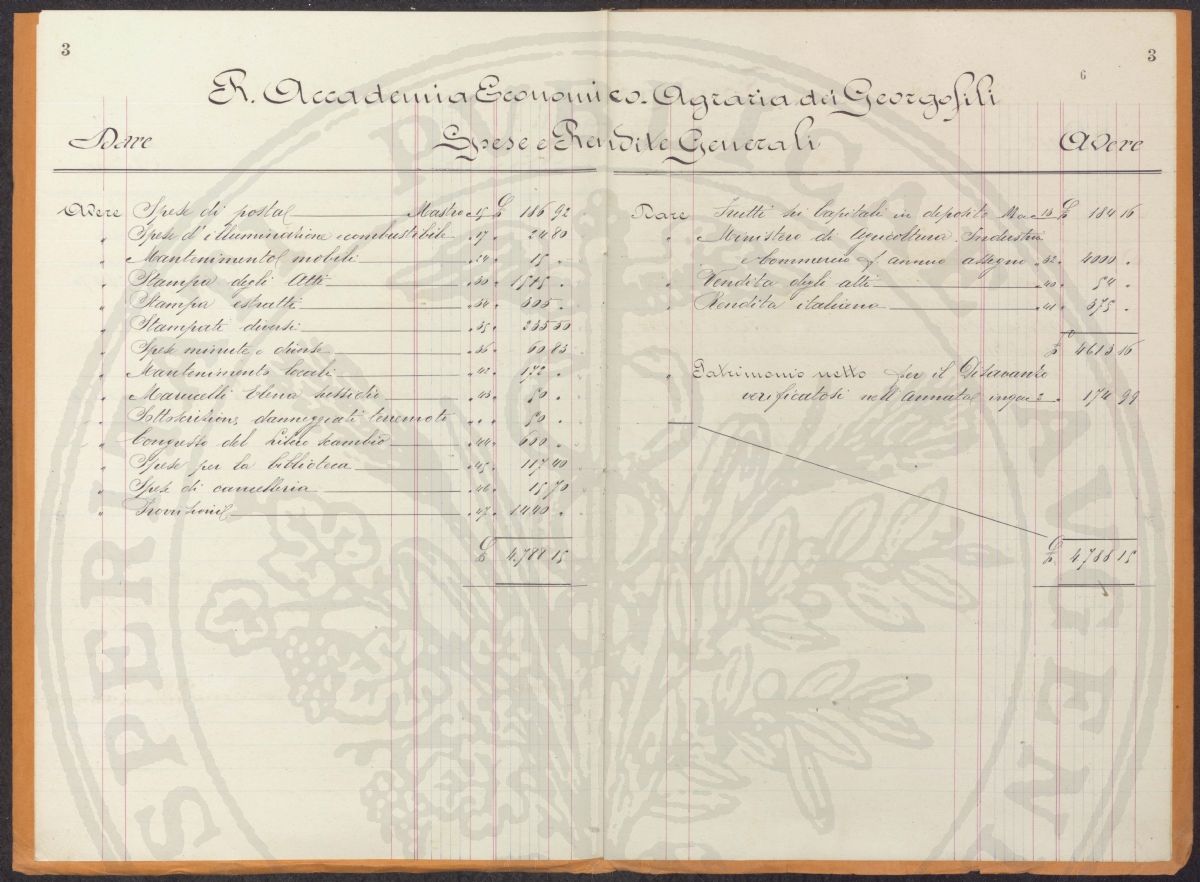 3
3
6
R. Accademia Economico-Agraria dei Georgofili
Dare
Spese e Rendite Generali
Avere
Avere Spese di posta Mastro 15 £ 186 92
" Spese d'illuminazione e combustibile " 17 " 24 80
" Mantenimento mobili " 24 " 15 "
" Stampa degli Atti " 30 " 1515 "
" Stampa estratti " 34 " 305 "
" Stampati diversi " 35 " 235 50
" Spese minute e diverse " 36 " 60 83
" Mantenimento locali " 42 " 172 "
" Marucelli Elena sussidio " 43 " 50 "
" Sottoscrizione danneggiati terremoto " " " 50 "
" Congresso del libero scambio " 44 " 600 "
" Spese per la biblioteca " 45 " 117 40
" Spese di cancelleria " 46 " 15 70
" " 47 " 1440 "
£ 4,788 15
Dare Frutti sui Capitali in deposito £ 184 16
" Ministero di Agricoltura Industria
e Commercio p. annuo assegno " 32 " 4000 "
" Vendita degli atti " 40 " 54 "
" Rendita italiana " 41 " 375 "
£ 4613 16
" Patrimonio netto per il Disavanzo
verificatosi nell'annata 2 " 174 99
£ 4,788 15
SPERITAS PUBLICAE AUGENDAE